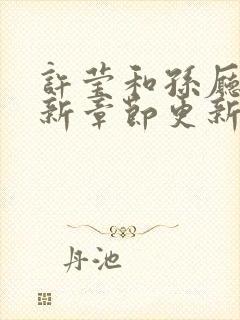 許莹和孫廳
新章節更新
丹池